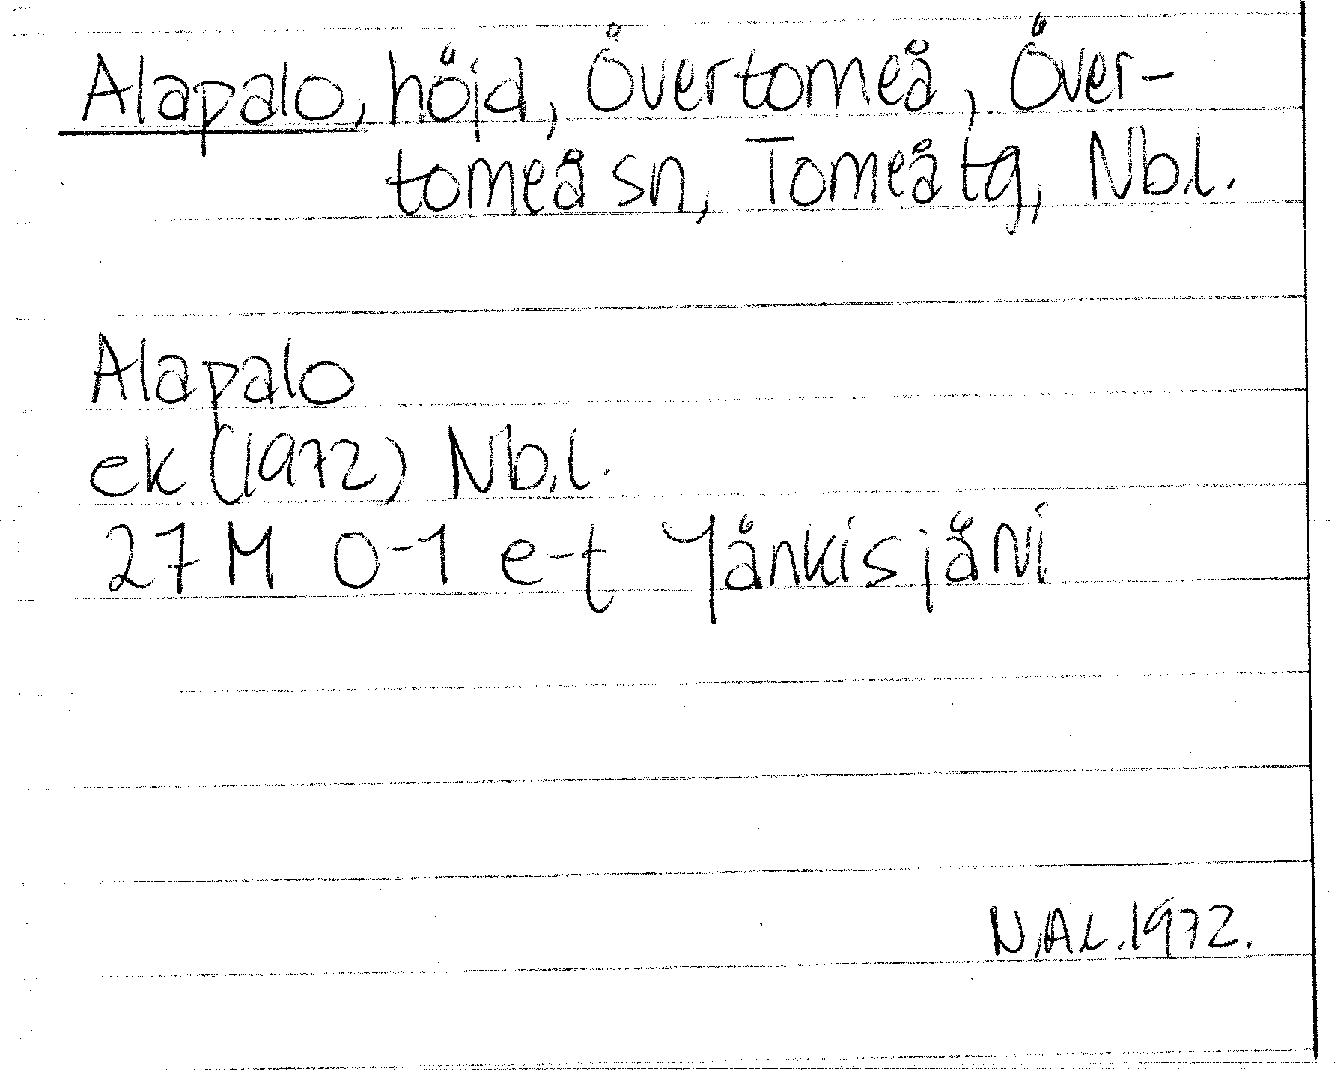 Alapalo, höjd, Övertorneå, Över-
torneå sn, Torneå tg, Nb.l.
Alapalo
ek (1972) Nb.l.
27 M 0-1 e-f Jänkisjärvi
N.A.L. 1972.